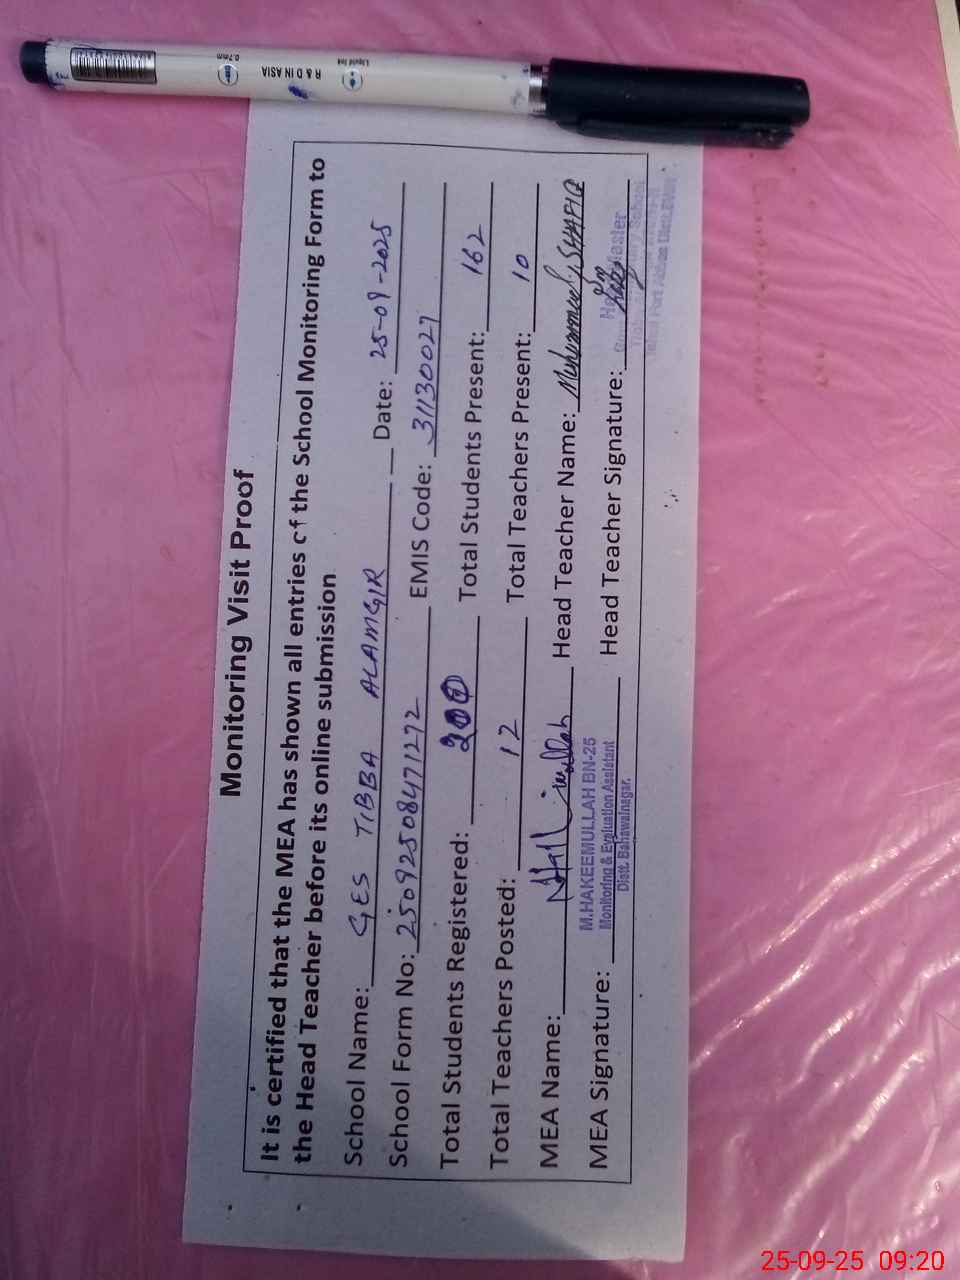 Monitoring Visit Proof
It is certified that the MEA has shown all entries of the School Monitoring Form to
the Head Teacher before its online submission
School Name: GES TIBBA ALAMGIR Date: 25-09-2025
School Form No: 25092508471272 EMIS Code: 31130027
Total Students Registered: 200 Total Students Present: 162
Total Teachers Posted: 12 Total Teachers Present: 10
MEA Name: Head Teacher Name: Muhammad SHAFIQ
MEA Signature: Head Teacher Signature:
M.HAKEEMULLAH BN-25
Monitoring & Evaluation Assistant
Distt. Bahawalnagar.
R & D IN ASIA
Liquid Ink
0.7mm
25-09-25 09:20